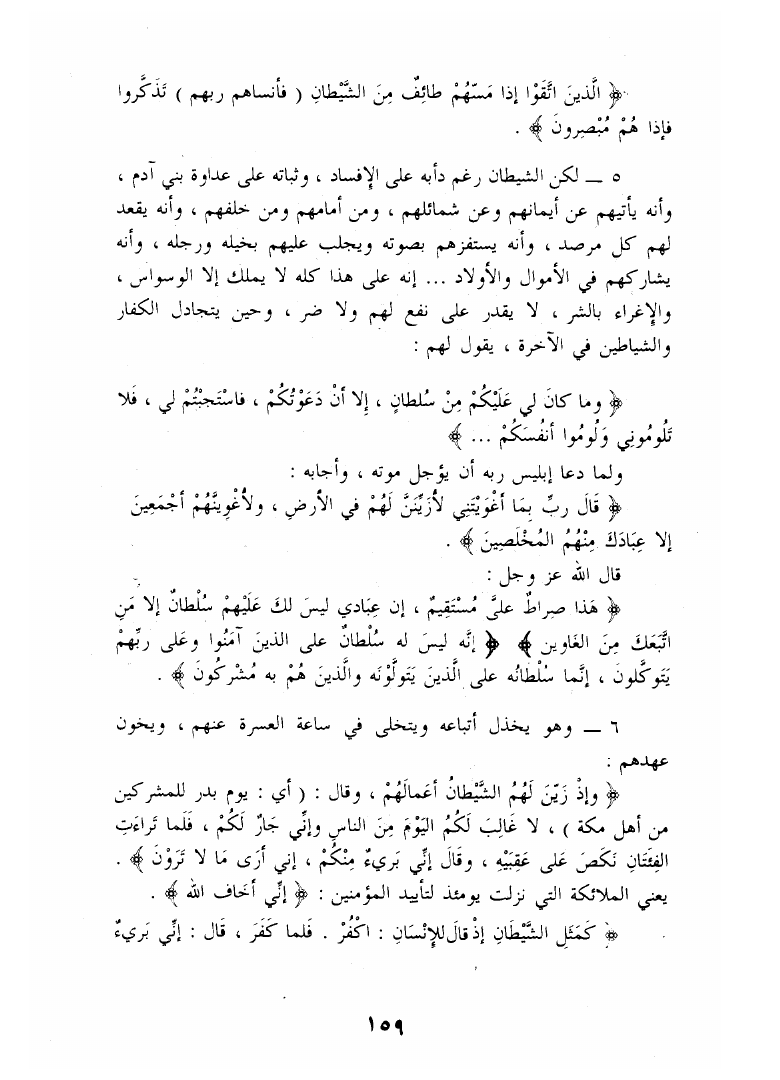 ﴿ الَّذينَ اتَّقَوْا إذا مَسّهُمْ طائِفٌ مِنَ الشَّيْطانِ ( فأنساهم ربهم ) تَذَكَّروا
فإذا هُمْ مُبْصِرونَ ﴾ .
٥ ــ لكن الشيطان رغم دأبه على الإفساد ، وثباته على عداوة بني آدم ،
وأنه يأتيهم عن أيمانهم وعن شمائلهم ، ومن أمامهم ومن خلفهم ، وأنه يقعد
لهم كل مرصد ، وأنه يستفزهم بصوته ويجلب عليهم بخيله ورجله ، وأنه
يشاركهم في الأموال والأولاد ... إنه على هذا كله لا يملك إلا الوسواس ،
والإغراء بالشر ، لا يقدر على نفع لهم ولا ضر ، وحين يتجادل الكفار
والشياطين في الآخرة ، يقول لهم :
﴿ وما كانَ لي عَلَيْكُمْ مِنْ سُلطانٍ ، إلا أنْ دَعَوْتُكُمْ ، فاسْتَجَبْتُمْ لي ، فَلا
تَلُومُوني وَلُومُوا أنفُسَكُمْ ... ﴾
ولما دعا إبليس ربه أن يؤجل موته ، وأجابه :
﴿ قَالَ ربِّ بِمَا أغْوَيْتَنِي لأزَيِّنَنَّ لَهُمْ في الأرضِ ، ولأغْوِينَّهُمْ أجْمَعِينَ
إلا عِبَادَكَ مِنْهُمُ المُخْلَصِينَ ﴾ .
قال الله عز وجل :
﴿ هَذا صِراطٌ علىَّ مُسْتَقِيمٌ ، إن عِبَادي ليسَ لكَ عَلَيْهِمْ سُلْطانٌ إلا مَنِ
اتَّبَعَكَ مِنَ الغَاوين ﴾ ﴿ إنَّه ليسَ له سُلْطانٌ على الذينَ آمَنُوا وعَلى ربِّهمْ
يَتَوكَّلونَ ، إنَّما سُلْطانُه على الَّذينَ يَتَولَّوْنَه والَّذينَ هُمْ به مُشْركُونَ ﴾ .
٦ ــ وهو يخذل أتباعه ويتخلى في ساعة العسرة عنهم ، ويخون
عهدهم :
﴿ وإذْ زَيَّنَ لَهُمُ الشَّيْطانُ أعْمالَهُمْ ، وقال : ( أي : يوم بدر للمشركين
من أهل مكة ) ، لا غَالِبَ لَكُمُ اليَوْمَ مِنَ الناسِ وإنِّي جَارٌ لَكُمْ ، فَلَما تَراءَتِ
الفِئَتَانِ نَكَصَ عَلى عَقِبَيْهِ ، وقالَ إنِّي بَريءٌ مِنْكُمْ ، إني أرَى مَا لا تَرَوْنَ ﴾ .
يعني الملائكة التي نزلت يومئذ لتأييد المؤمنين : ﴿ إنِّي أخَاف الله ﴾ .
﴿ كَمَثَلِ الشَّيْطَانِ إذْ قالَ للإنْسَانِ : اكْفُرْ . فَلما كَفَرَ ، قَال : إنِّي بَريءٌ
١٥٩